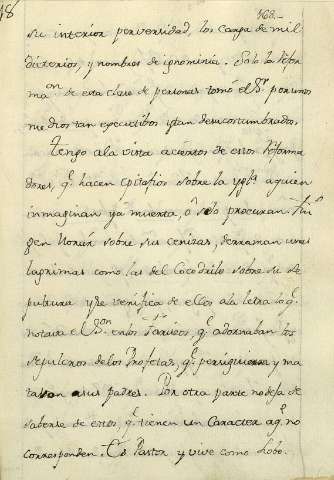 18
168.
su interior perversidad, los carga de mil
dicterios, y nombres de ignominia. Solo la refor
ma on. de esta clase de personas tomó el Sr. por unos
medios tan egecutibos y tan desacostumbrados.
Tengo a la vista a ciertos de estos reforma
dores, q.e hacen epitafios sobre la ygla. a quien
inmaginan ya muerta, ô solo procuran. Fin
gen llorar sobre sus cenizas, derraman unas
lagrimas como las del Cocodrilo sobre su se
pultura y se verifica de ellos a la letra lo q.e
notaba el Sor. en los Fariseos, q.e adornaban los
sepulcros de los Profetas, q.e persiguieron y ma
taron a sus padres. Por otra parte no deja de
saberse de estos, q.e tienen un Caracter a q.e no
corresponden. Es Pastor, y vive como Lobo.